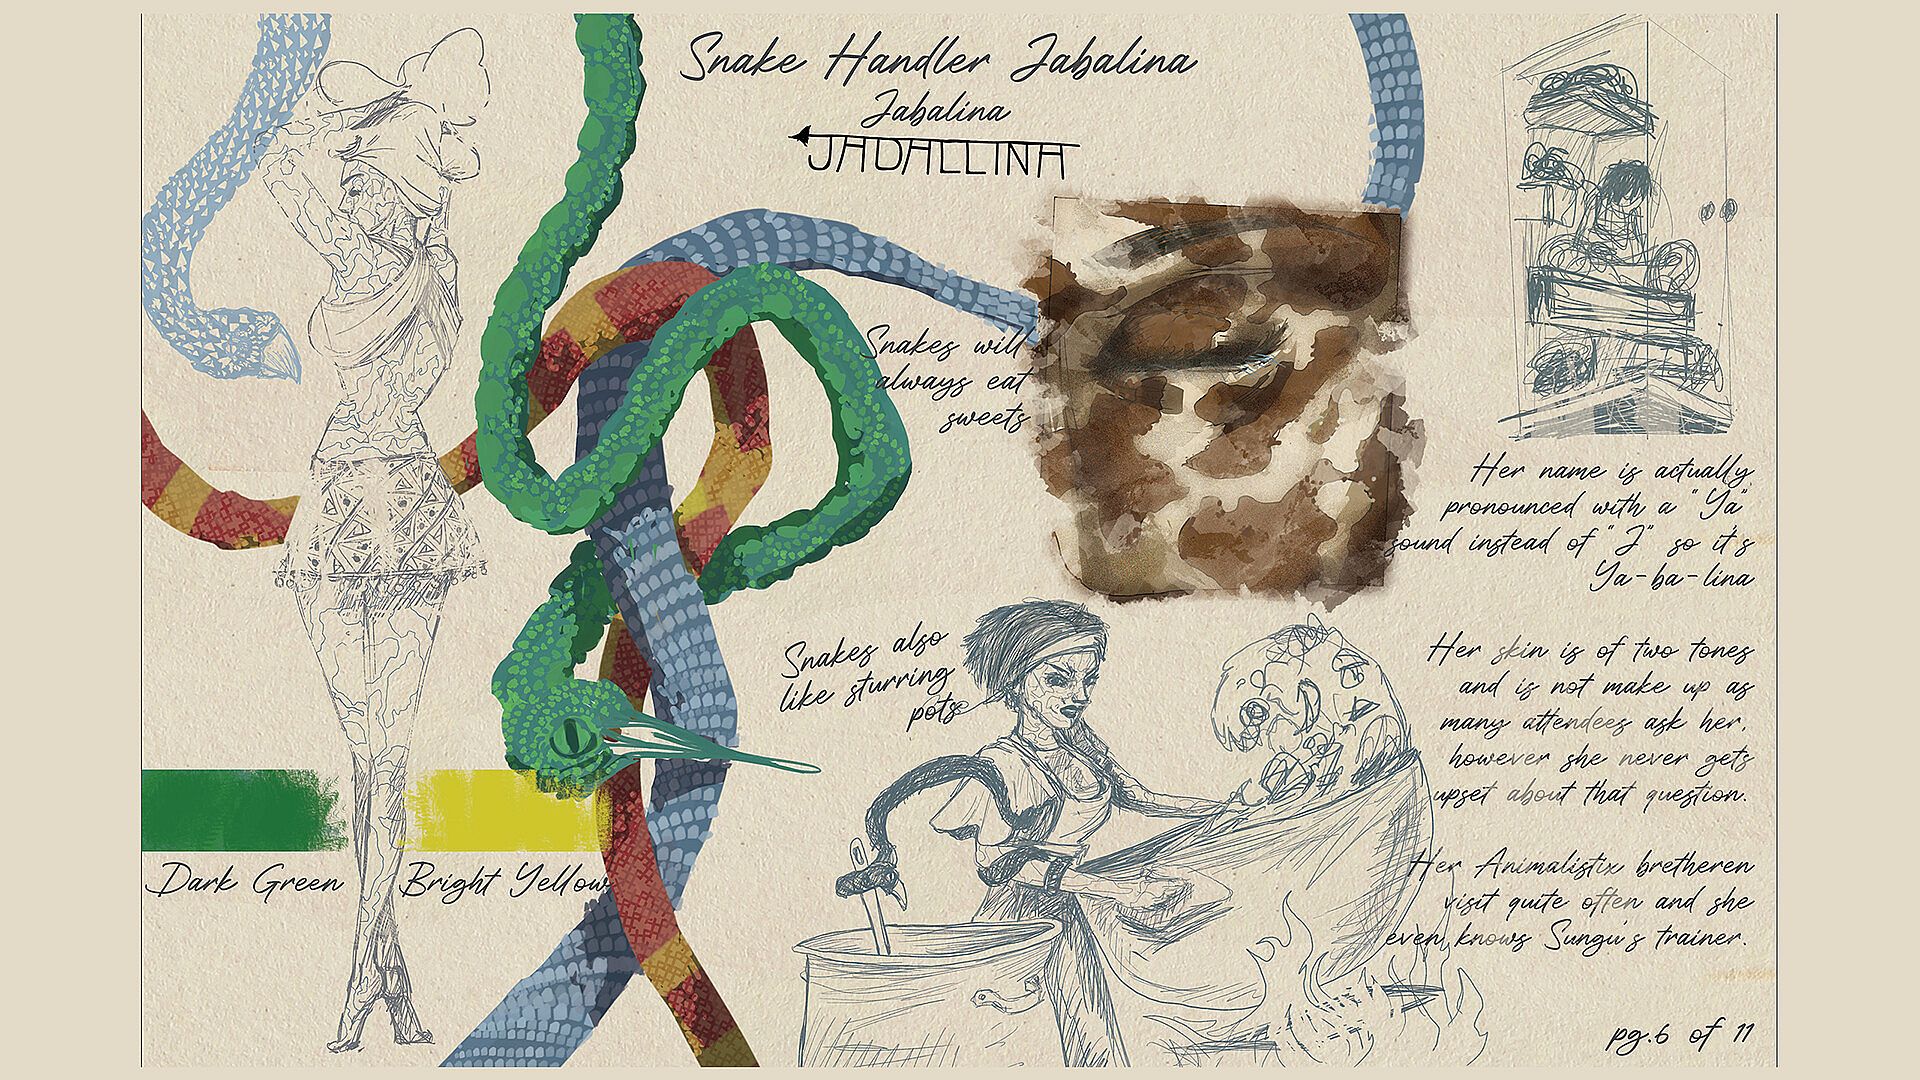 Snake Handler Jabalina
Jabalina
JADALLINA
Snakes will
always eat
sweets
Her name is actually
pronounced with a "Ya"
sound instead of "J" so it's
Ya-ba-lina
Snakes also
like sturring
pots
Her skin is of two tones
and is not make up as
many attendees ask her,
however she never gets
upset about that question.
Dark Green
Bright Yellow
Her Animalistix bretheren
visit quite often and she
even knows Sungu's trainer.
pg.6 of 11